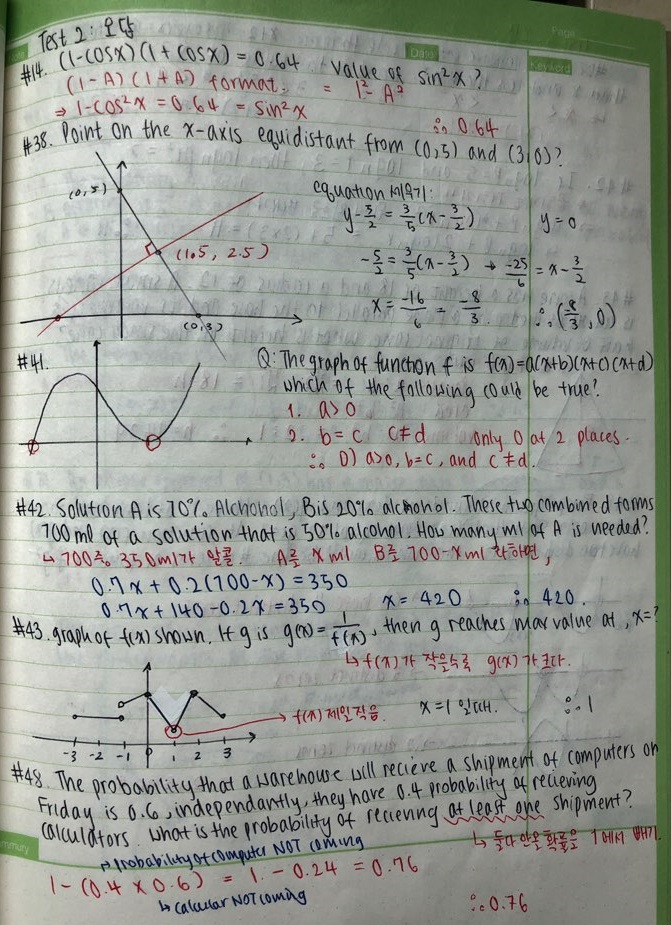 Page
Date
Keyword
Test 2: 오답
#14. (1-cosx)(1+cosx) = 0.64 Value of sin²x?
(1-A)(1+A) format. = 1²-A²
⇒ 1-cos²x = 0.64 = sin²x ∴ 0.64
#38. Point on the x-axis equidistant from (0,5) and (3,0)?
(0,5)
(1.5, 2.5)
(0,3)
equation 세우기:
y-5/2 = 3/5(x-3/2) y=0
-5/2 = 3/5(x-3/2) → -25/6 = x-3/2
x = -16/6 = -8/3. ∴ (8/3, 0)
#41.
Q: The graph of function f is f(x)=a(x+b)(x+c)(x+d)
which of the following could be true?
1. a>0
2. b=c c≠d only 0 at 2 places.
∴ D) a>0, b=c, and c≠d.
#42. Solution A is 70% Alchohol, B is 20% alcohol. These two combined forms
700 ml of a solution that is 50% alcohol. How many ml of A is needed?
↳ 700중 350ml가 알콜. A를 x ml B를 700-x ml 라하면,
0.7x + 0.2(700-x) = 350
0.7x + 140 - 0.2x = 350 x = 420 ∴ 420.
#43. graph of f(x) shown. If g is g(x) = 1/f(x), then g reaches max value at, x=?
↳ f(x)가 작을수록 g(x)가 크다.
→ f(x) 제일작음. x=1 일때. ∴ 1
-3 -2 -1 0 1 2 3
#48. The probability that a warehouse will recieve a shipment of computers on
Friday is 0.6, independantly, they have 0.4 probability of recieving
calculators. What is the probability of recieving at least one shipment?
↱ Probability of computer NOT coming ↳ 둘다 안올 확률을 1에서 빼기.
1-(0.4 × 0.6) = 1. - 0.24 = 0.76
↳ calcular NOT coming
∴ 0.76